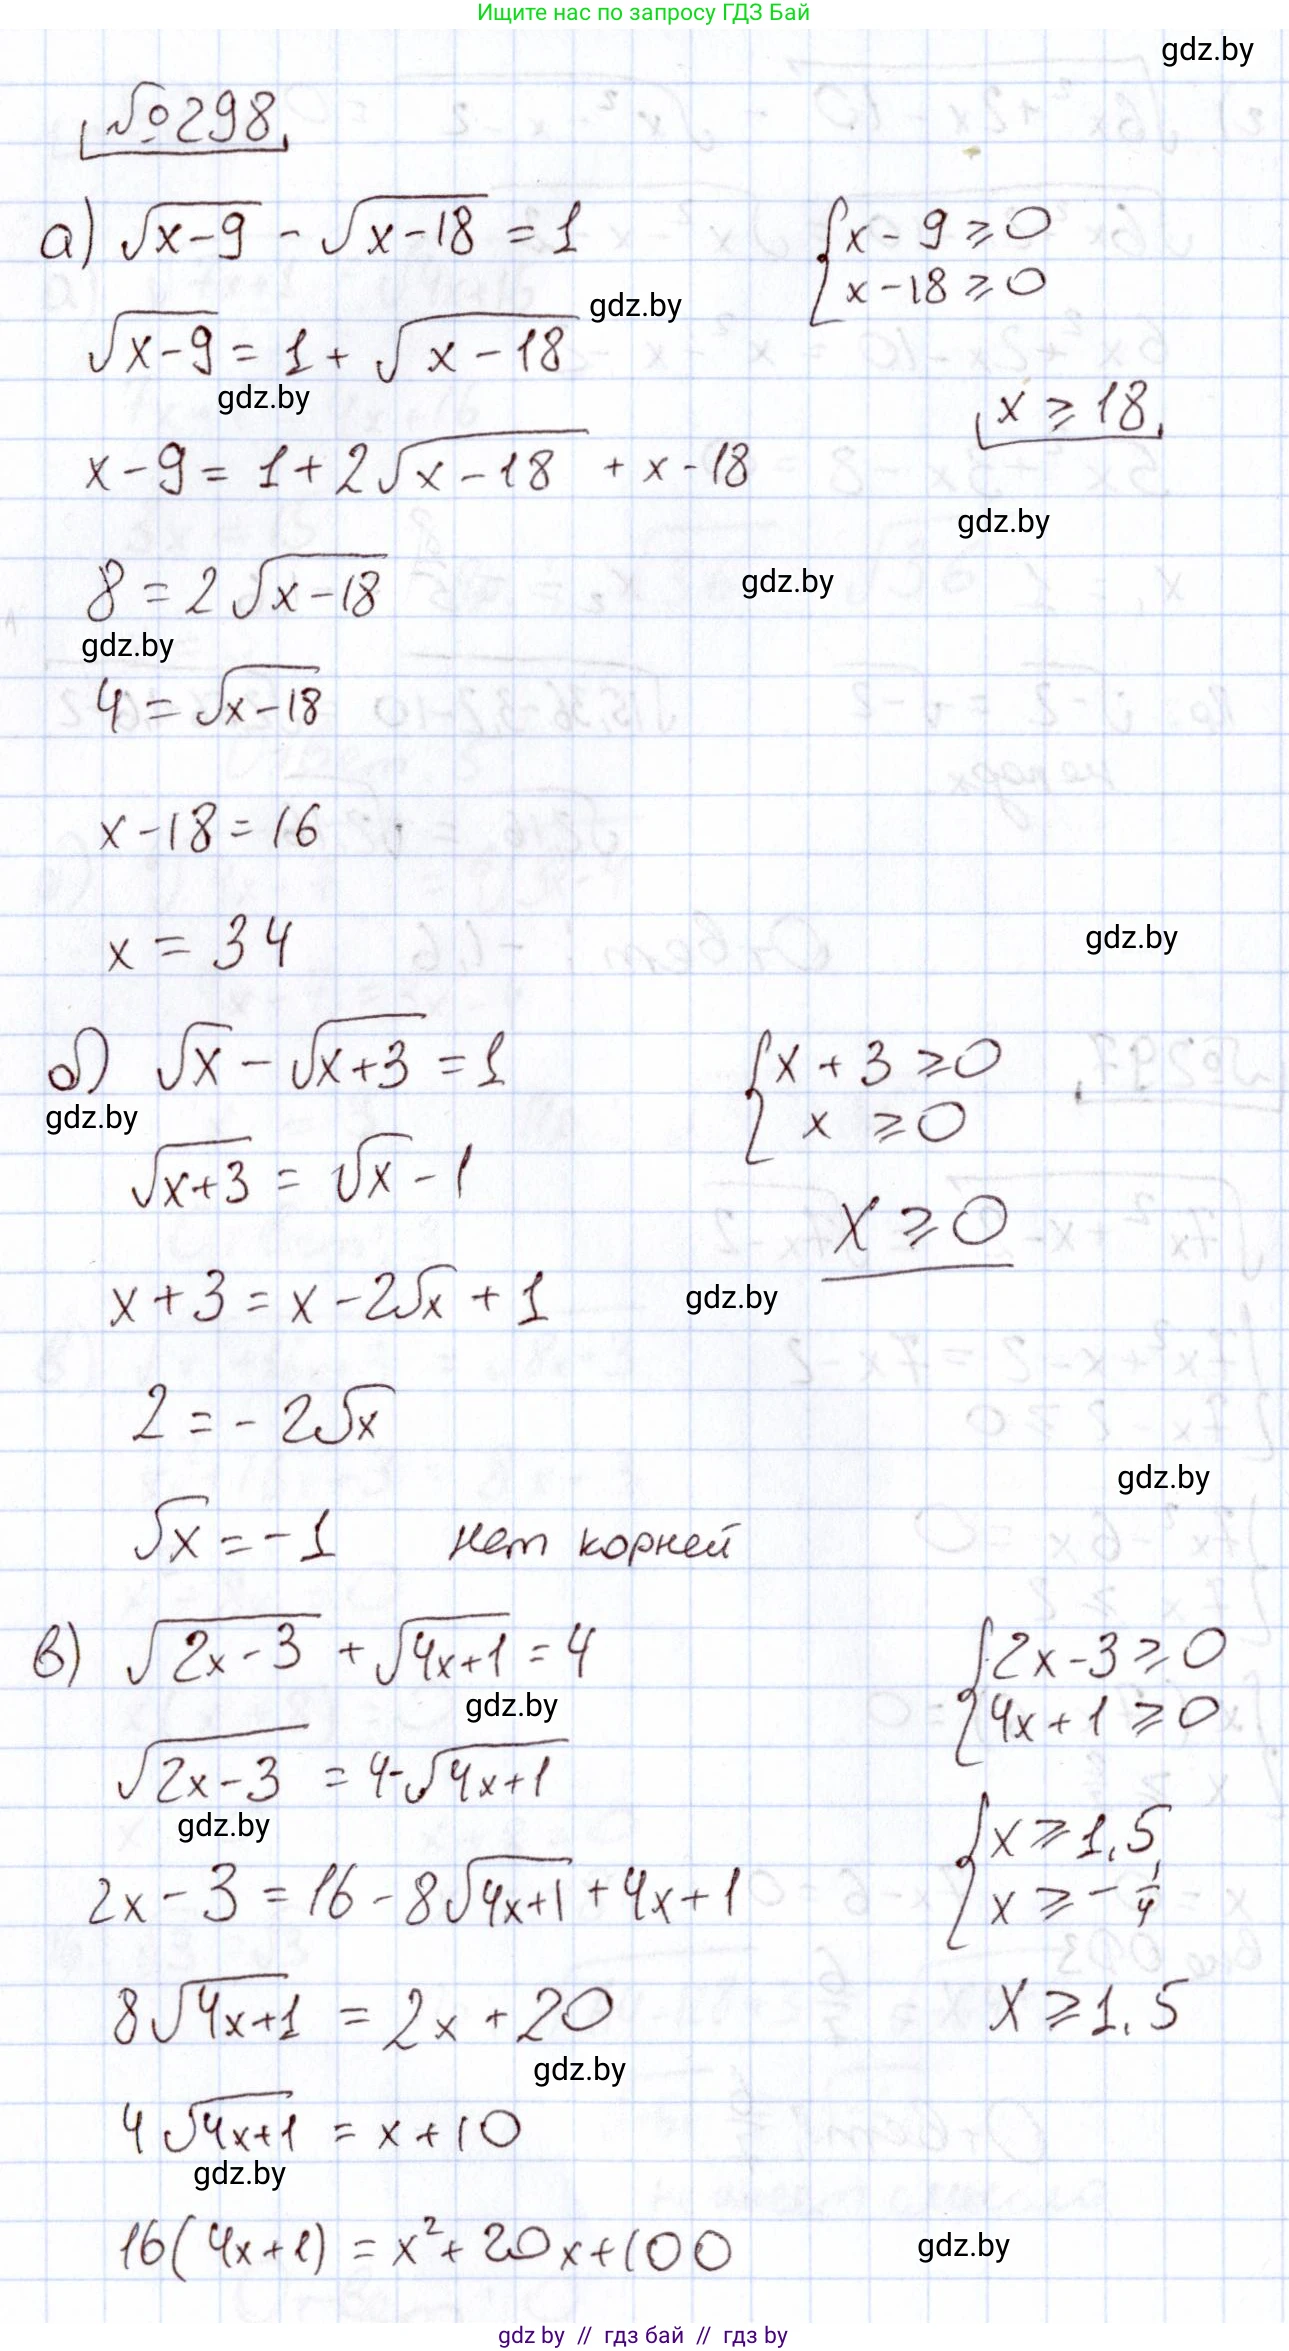 Ищите нас по запросу ГДЗ Бай
gdz.by
№298
а) √(x-9) - √(x-18) = 1
{x-9 ≥ 0
x-18 ≥ 0
gdz.by
√(x-9) = 1 + √(x-18)
gdz.by
x ≥ 18
x-9 = 1+2√(x-18) + x-18
gdz.by
8 = 2√(x-18)
gdz.by
gdz.by
4 = √(x-18)
x-18 = 16
x = 34
gdz.by
б) √x - √(x+3) = 1
{x+3 ≥ 0
x ≥ 0
gdz.by
√(x+3) = √x - 1
x ≥ 0
x+3 = x-2√x + 1
gdz.by
2 = -2√x
gdz.by
√x = -1 нет корней
в) √(2x-3) + √(4x+1) = 4
{2x-3 ≥ 0
4x+1 ≥ 0
gdz.by
√(2x-3) = 4-√(4x+1)
gdz.by
{x ≥ 1,5
x ≥ -1/4
2x-3 = 16-8√(4x+1) + 4x+1
8√(4x+1) = 2x+20
x ≥ 1,5
gdz.by
4√(4x+1) = x+10
gdz.by
16(4x+1) = x²+20x+100
gdz.by
gdz by // гдз бай // гдз by